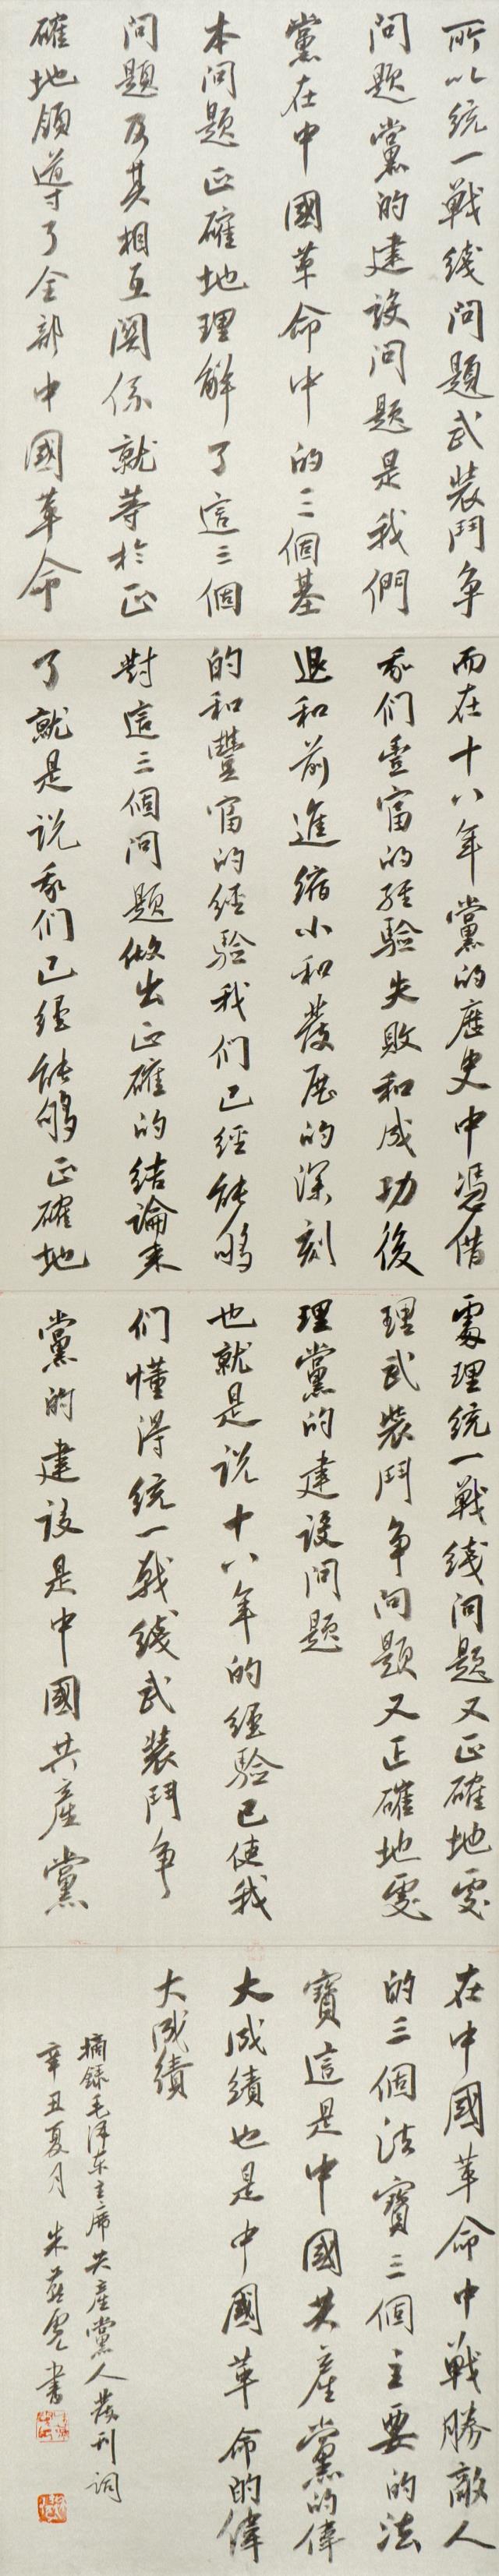 所以统一戰线问题武装鬥争
问题黨的建设问题是我們
黨在中國革命中的三個基
本问题正確地理解了這三個
问题及其相互関係就等於正
確地领導了全部中國革命
而在十八年黨的歷史中憑借
我们豊富的經驗失敗和成功後
退和前進缩小和發展的深刻
的和豐富的經验我们已經能够
對這三個问题做出正確的结論来
了就是说我们已經能够正確地
處理统一戰线问题又正確地處
理武装鬥争问题又正確地處
理黨的建设问题
也就是说十八年的經验已使我
们懂得统一戰綫武装鬥争
黨的建设是中國共産黨
在中國革命中戰勝敵人
的三個法寶三個主要的法
寶這是中國共産黨的偉
大成績也是中國革命的偉
大成績
摘錄毛泽东主席共産黨人發刊词
辛丑夏月 朱
書